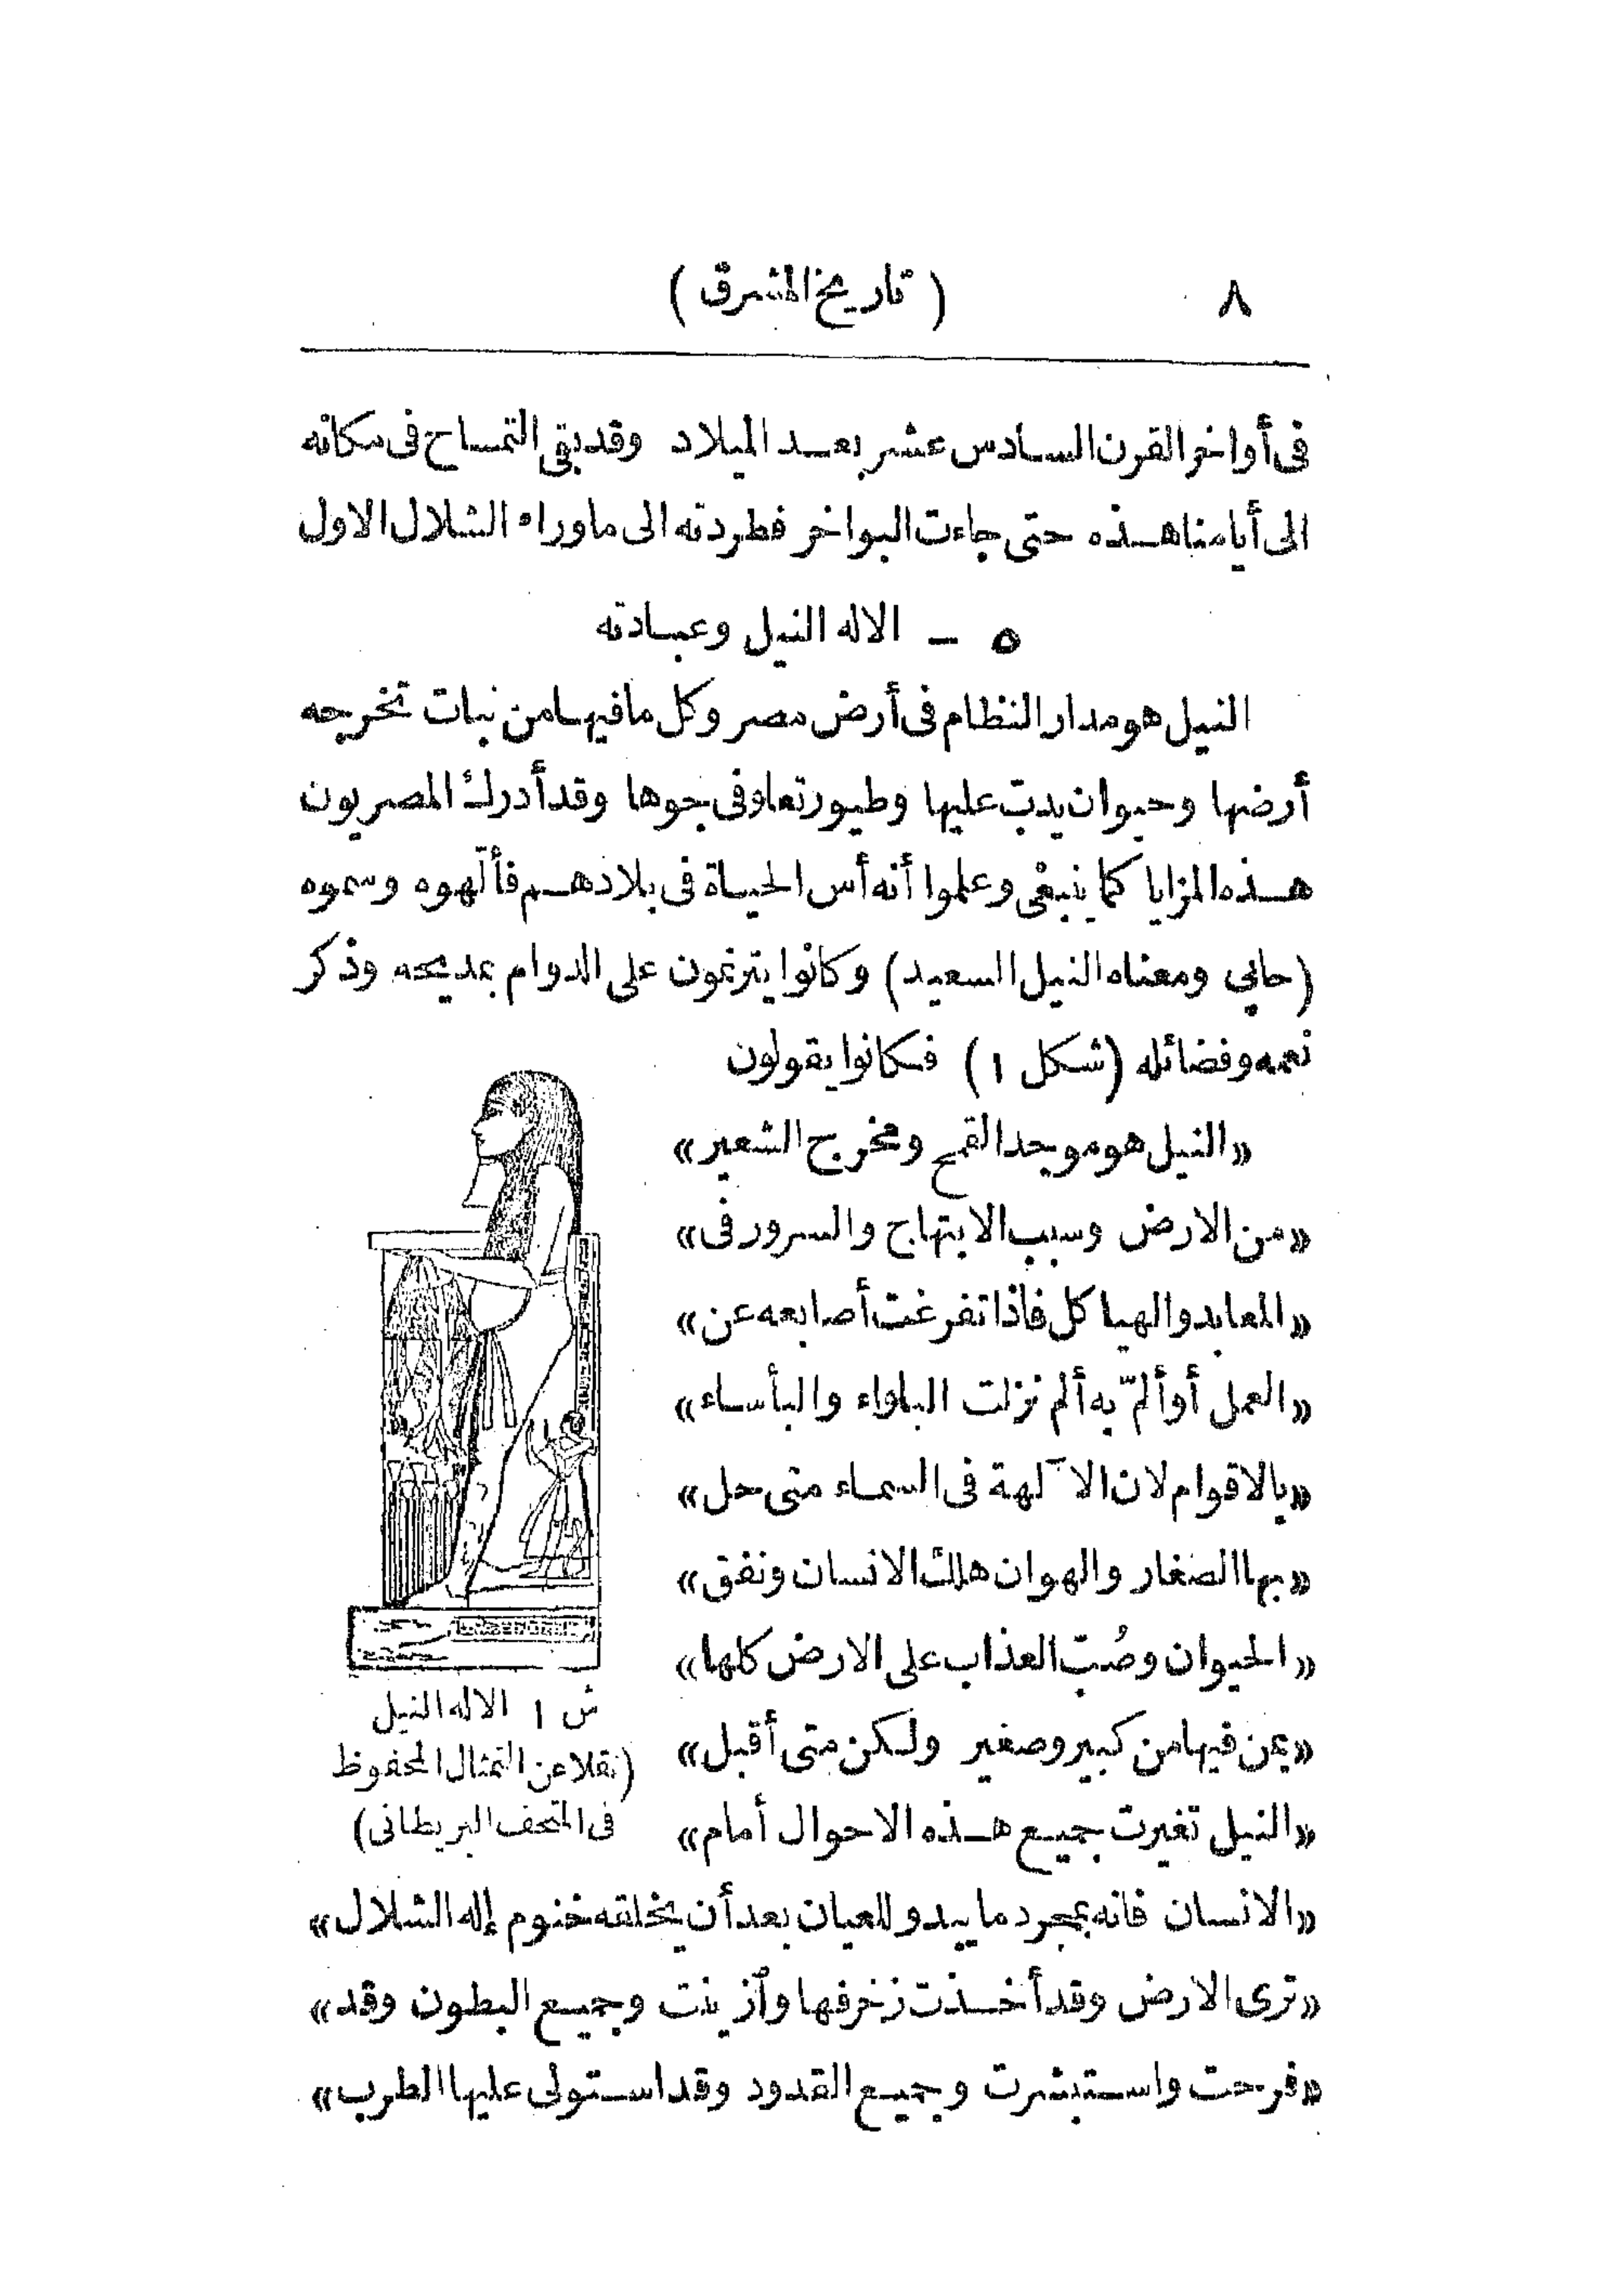 ٨
( تاريخ المشرق )
فى أواخر القرن السادس عشر بعد الميلاد وقد بقى التمساح فى مكانه
الى أيامنا هذه حتى جاءت البواخر فطردته الى ما وراء الشلال الاول
٥ – الاله النيل وعبادته
النيل هو مدار النظام فى أرض مصر وكل ما فيها من نبات تخرجه
أرضها وحيوان يدبّ عليها وطيور تعلو فى جوها وقد أدرك المصريون
هذه المزايا كما ينبغى وعلموا أنه أس الحياة فى بلادهم فألّهوه وسموه
(حابي ومعناه النيل السعيد) وكانوا يترنمون على الدوام بمديحه وذكر
نعمه وفضائله (شكل ١) فكانوا يقولون
«النيل هو موجد القمح ومخرج الشعير»
«من الارض وسبب الابتهاج والسرور فى»
«المعابد والهياكل فاذا تفرغت أصابعه عن»
«العمل أو ألمّ به ألم نزلت البلواء والبأساء»
«بالاقوام لان الآلهة فى السماء متى حل»
«بها الصغار والهوان هلك الانسان ونفق»
«الحيوان وصُبّ العذاب على الارض كلها»
«بمن فيها من كبير وصغير ولكن متى أقبل»
«النيل تغيرت جميع هذه الاحوال أمام»
«الانسان فانه بمجرد ما يبدو للعيان بعد أن يخلقه خنوم إله الشلال»
«ترى الارض وقد أخذت زخرفها وٱزينت وجميع البطون وقد»
«فرحت واستبشرت وجميع القدود وقد استولى عليها الطرب»
ش ١ الاله النيل
(نقلا عن التمثال المحفوظ
فى المتحف البريطانى)